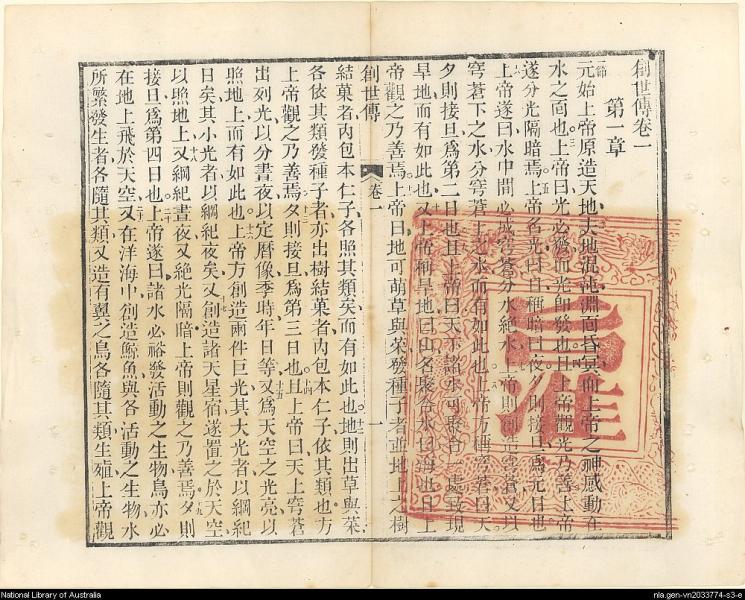 創世傳卷一
第一章
元始上帝原造天地夫地混沌淵面昏冥而上帝之神感動在
水之面也上帝曰光必發而光即發也且上帝觀光乃善上帝
遂分光隔暗焉上帝名光曰日稱暗曰夜夕則接旦爲元日也
上帝遂曰水中間必成穹蒼分水絕水上帝則創造穹蒼又以
穹蒼下之水分穹蒼上之水而有如此也上帝方稱穹蒼曰天
夕則接旦爲第二日也且上帝曰天下諸水可聚合一處致現
旱地而有如此也又上帝稱旱地曰地名聚合水曰海也且上
帝觀之乃善焉上帝曰地可萌草與菜發種子者並地上之樹
創世傳 卷一 一
結菓者內包本仁子各照其類矣而有如此也地則出草與菜
各依其類發種子者亦出樹結菓者內包本仁子依其類也方
上帝觀之乃善焉夕則接旦爲第三日也且上帝曰天上穹蒼
出列光以分晝夜以定曆像季時年日等又爲天空之光亮以
照地上而有如此也上帝方創造兩件巨光其大光者以綱紀
日矣其小光者以綱紀夜矣又創造諸天星宿遂置之於天空
以照地上又綱紀晝夜又絕光隔暗上帝則觀之乃善焉夕則
接旦爲第四日也上帝遂曰諸水必裕發活動之生物鳥亦必
在地上飛於天空又在洋海中創造鯨魚與各活動之生物水
所繁發生者各隨其類又造有翼之鳥各隨其類生殖上帝觀
National Library of Australia
nla.gen-vn2033774-s3-e